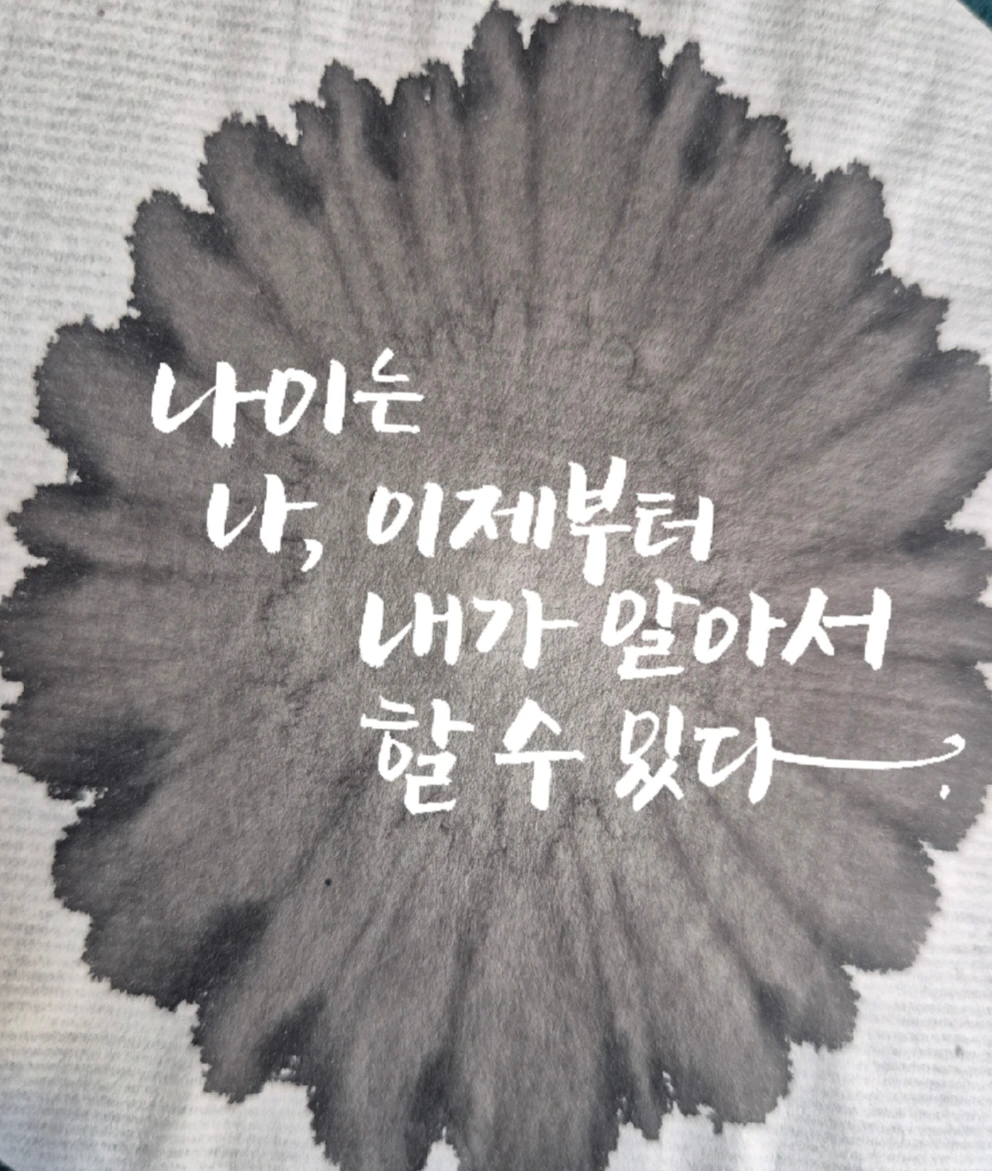 나이는
나, 이제부터
내가 알아서
할 수 있다.